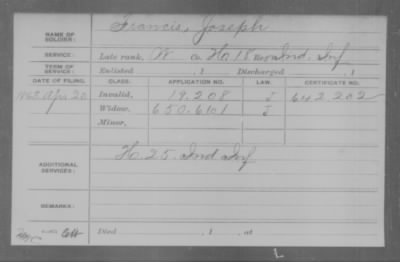 NAME OF SOLDIER: Francis, Joseph
SERVICE: Late rank, Co. H, 18 Ind. Inf
TERM OF SERVICE: Enlisted , 1 Discharged , 1
DATE OF FILING. CLASS. APPLICATION NO. LAW. CERTIFICATE NO.
Apr 20 Invalid, 19.208 J 642.202
Widow, J
Minor,
ADDITIONAL SERVICES: H. 25. Ind Inf
REMARKS:
Died , 1 , at
L